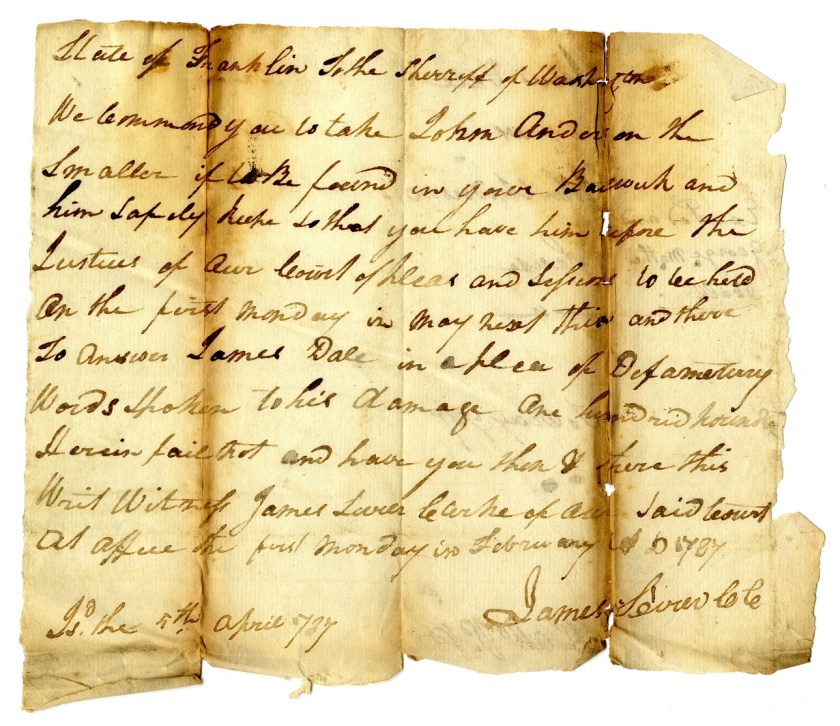 State of Franklin To the Sherriff of Washington
We Command you to take John Anderson the
Smaller if to Be found in your Baewick and
him Safely keepe So that you have him before the
Justices of our Court of pleas and Sessions to be held
on the first monday in may next then and there
To answer James Dale in a plea of Defametory
Words Spoken to his damage one hundrid pounds
Herein fail not and have you then & there this
Writ Witness James Sevier Clerke of our Said Court
at office the first monday in February A D 1787
Isd. the 5th april 787
James Sevier CC